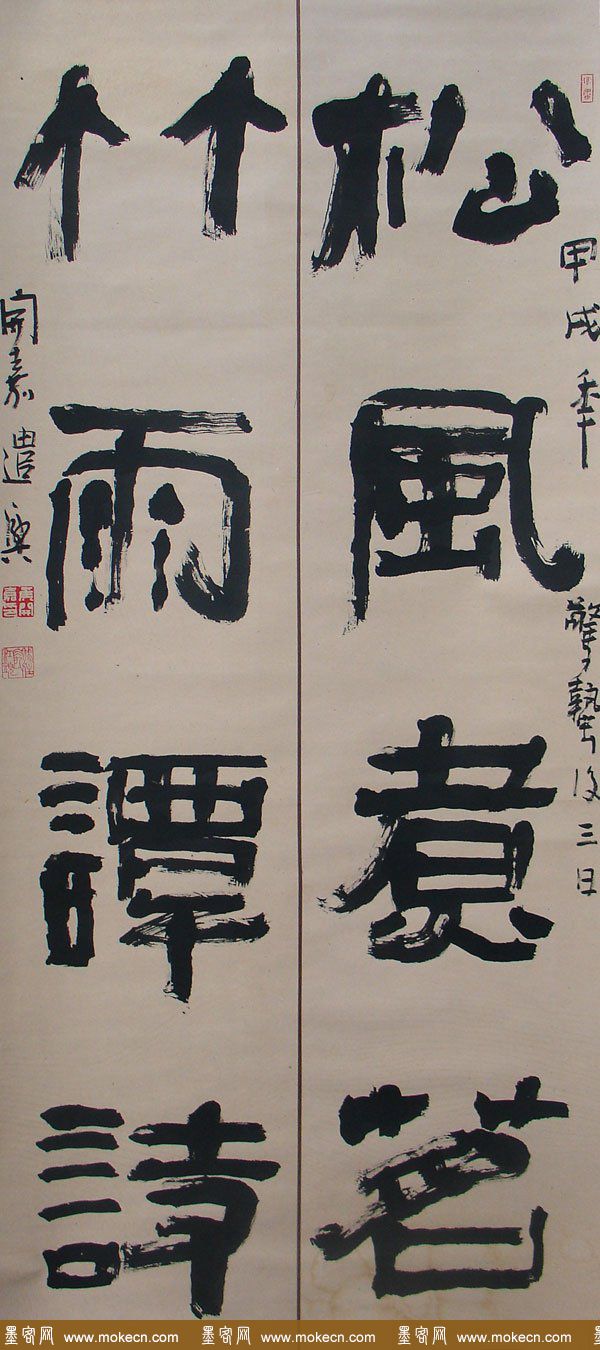 甲戌年 驚蟄後三日
松風煮茗
竹雨譚詩
開嘉遣興
墨客网 www.mokecn.com 墨客网 www.mokecn.com 墨客网 www.mokecn.com